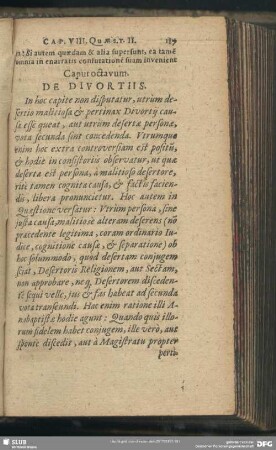 CAP. VIII. QUÆST. II. 189
autem quædam & alia supersunt, ea tamẽ
omnia in enarratis confutatione suam invenient
Caput octavum.
DE DIVORTIIS.
In hoc capite non disputatur, utrùm de-
sertio malitiosa & pertinax Divortij cau-
sa esse queat, aut utrùm desertæ personæ,
vota secunda sint concedenda. Utrumque
enim hoc extra controversiam est positũ,
& hodie in consistoriis observatur, ut quæ
deserta est persona, à malitioso desertore,
riti tamen cognita causa, & factis facien-
dis, libera pronuncietur. Hoc autem in
Quæstione versatur: Utrùm persona, sine
justa causa, malitiosè alteram deserens (nõ
præcedente legitima, coram ordinario Iu-
dice, cognitione causæ, & separatione) ob
hoc solummodo, quòd desertam conjugem
sciat, Desertoris Religionem, aut Sectam,
non approbare, neq; Desertorem disceden-
tẽ sequi velle, jus & fas habeat ad secunda
vota transeundi. Hac enim ratione illi A-
nabaptistæ hodie agunt: Quando quis illo-
rum fidelem habet conjugem, ille verò, aut
sponte discedit, aut à Magistratu propter
perti-
SLUB